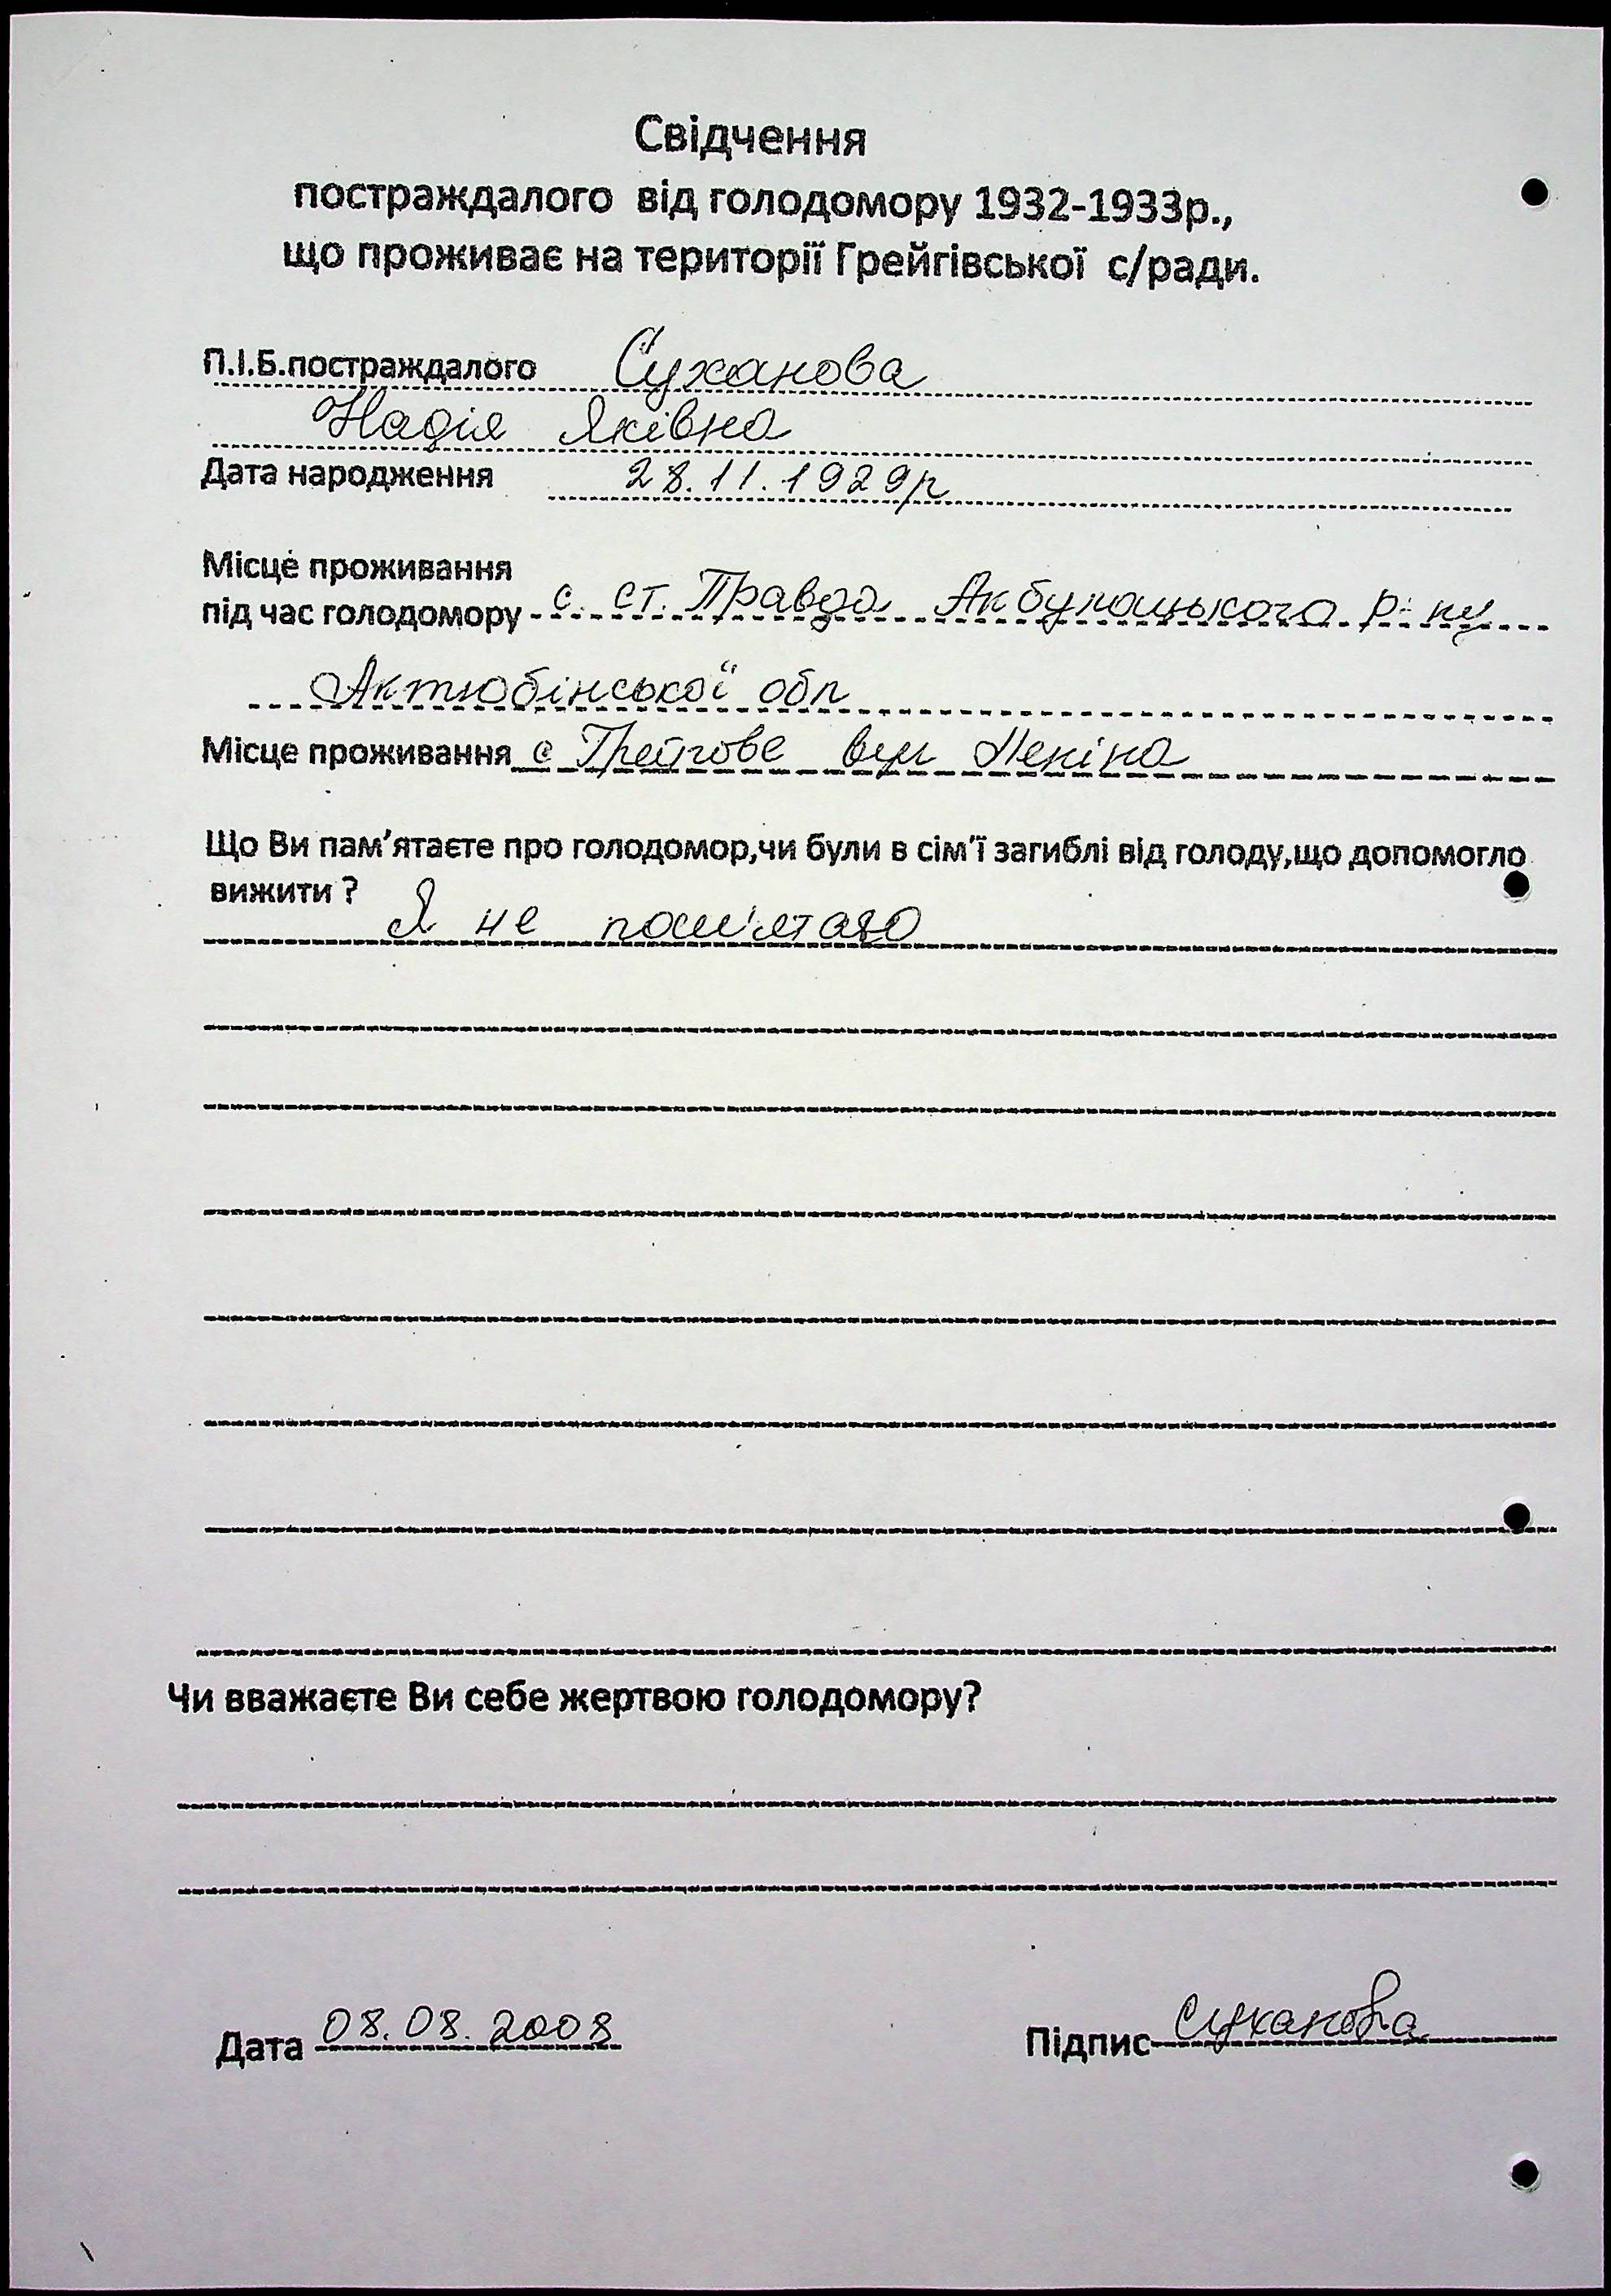 Свідчення
постраждалого від голодомору 1932-1933р.,
що проживає на території Грейгівської с/ради.
П.І.Б.постраждалого Суханова
Надія Яківна
Дата народження 28.11.1929р
Місце проживання
під час голодомору с. ст. Правда Акбулацького р-ну
Актюбінської обл
Місце проживання с Грейгове вул Леніна
Що Ви пам'ятаєте про голодомор,чи були в сім'ї загиблі від голоду,що допомогло
вижити ? Я не пам'ятаю
Чи вважаєте Ви себе жертвою голодомору?
Дата 08.08.2008 Підпис Суханова